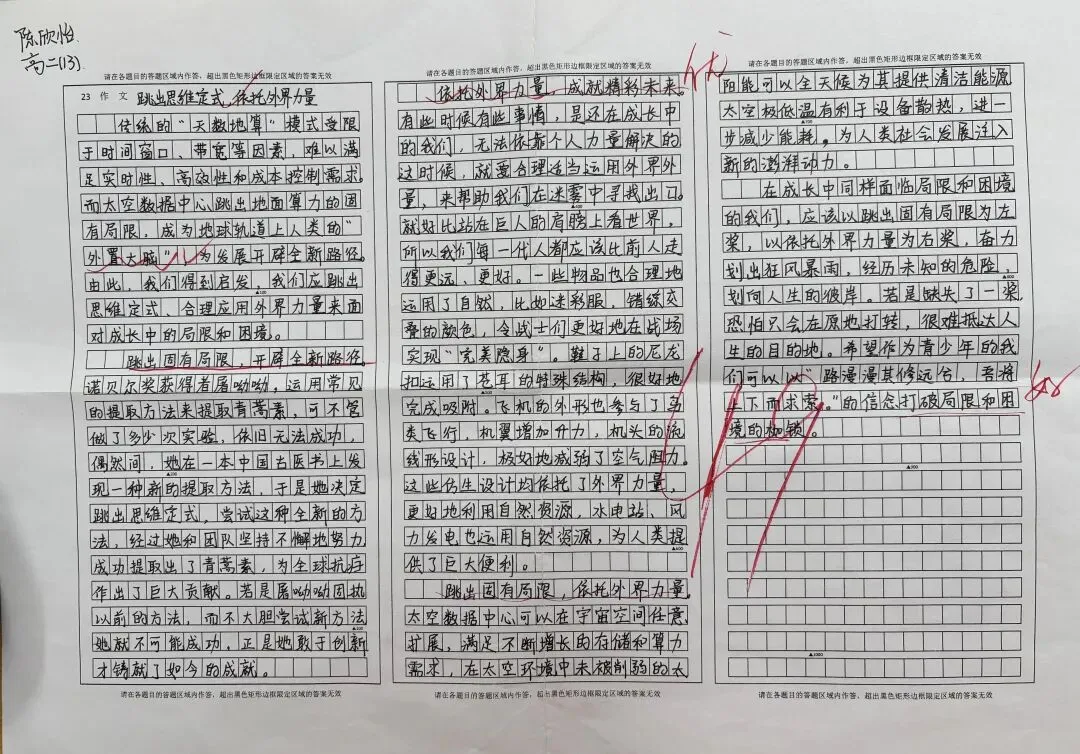 陈欣怡
高二(13)
请在各题目的答题区域内作答，超出黑色矩形边框限定区域的答案无效
23 作文 跳出思维定式，依托外界力量
传统的“天数地算”模式受限
于时间窗口、带宽等因素，难以满
足实时性、高效性和成本控制需求。
而太空数据中心跳出地面算力的固
有局限，成为地球轨道上人类的“
外置大脑”，为发展开辟全新路径。
由此，我们得到启发，我们应跳出
思维定式、合理应用外界力量来面
对成长中的局限和困境。
跳出固有局限，开辟全新路径。
诺贝尔奖获得者屠呦呦，运用常见
的提取方法来提取青蒿素，可不管
做了多少次实验，依旧无法成功，
偶然间，她在一本中国古医书上发
现一种新的提取方法，于是她决定
跳出思维定式，尝试这种全新的方
法，经过她和团队坚持不懈地努力
成功提取出了青蒿素，为全球抗疟
作出了巨大贡献。若是屠呦呦固执
以前的方法，而不大胆尝试新方法
她就不可能成功，正是她敢于创新
才铸就了如今的成就。
请在各题目的答题区域内作答，超出黑色矩形边框限定区域的答案无效
请在各题目的答题区域内作答，超出黑色矩形边框限定区域的答案无效
依托外界力量，成就精彩未来。
有些时候有些事情，是还在成长中
的我们，无法依靠个人力量解决的
这时候，就要合理适当运用外界外
量，来帮助我们在迷雾中寻找出口。
就好比站在巨人的肩膀上看世界，
所以我们每一代人都应该比前人走
得更远、更好。一些物品也合理地
运用了自然，比如迷彩服，错综交
叠的颜色，令战士们更好地在战场
实现“完美隐身”。鞋子上的尼龙
扣运用了苍耳的特殊结构，很好地
完成吸附。飞机的外形也参与了鸟
类飞行，机翼增加升力，机头的流
线形设计，极好地减弱了空气阻力。
这些仿生设计均依托了外界力量，
更好地利用自然资源，水电站、风
力发电也运用自然资源，为人类提
供了巨大便利。
跳出固有局限，依托外界力量。
太空数据中心可以在宇宙空间任意
扩展，满足不断增长的存储和算力
需求，在太空环境中未被削弱的太
请在各题目的答题区域内作答，超出黑色矩形边框限定区域的答案无效
请在各题目的答题区域内作答，超出黑色矩形边框限定区域的答案无效
阳能可以全天候为其提供清洁能源
太空极低温有利于设备散热，进一
步减少能耗，为人类社会发展注入
新的澎湃动力。
在成长中同样面临局限和困境
的我们，应该以跳出固有局限为左
桨，以依托外界力量为右桨，奋力
划出狂风暴雨，经历未知的危险，
划向人生的彼岸。若是缺失了一桨
恐怕只会在原地打转，很难抵达人
生的目的地。希望作为青少年的我
们可以以“路漫漫其修远兮，吾将
上下而求索。”的信念打破局限和困
境的枷锁。
请在各题目的答题区域内作答，超出黑色矩形边框限定区域的答案无效